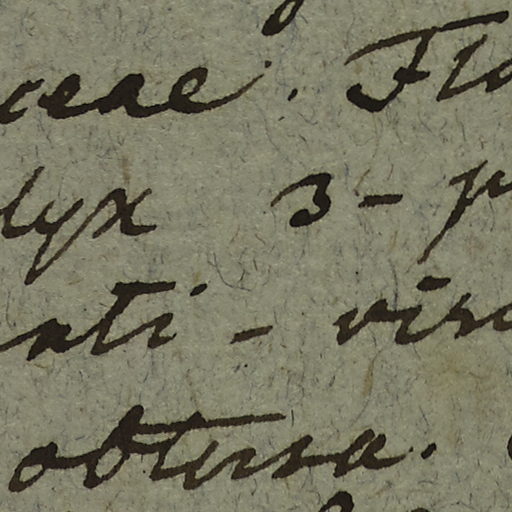 ceae. Flo
lyx 3-p
nti-vir
obtusa.